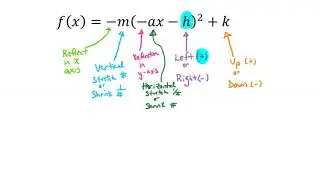 f(x) = −m(−ax − h)² + k
Reflect
in x
axis
Vertical
Stretch #
or
Shrink 1/#
Reflection
in
y-axis
Horizontal
Stretch 1/#
or
Shrink #
Left (+)
or
Right (−)
Up (+)
or
Down (−)